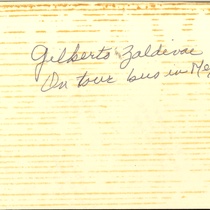 Gilberto Zaldivar
On tour bus in Me